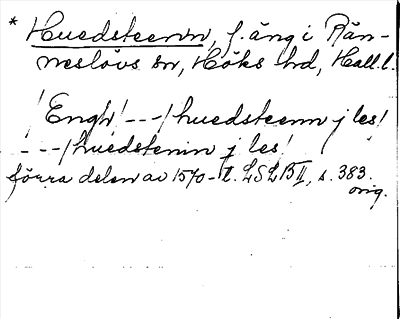 * Huedsteenn, f. äng i Rän-
neslövs sn, Höks hd, Hall.l.
! Engh! ---/huedsteenn j les!
---/huedstenin j les!
förra delen av 1570-t. LSLB II, s. 383.
orig.